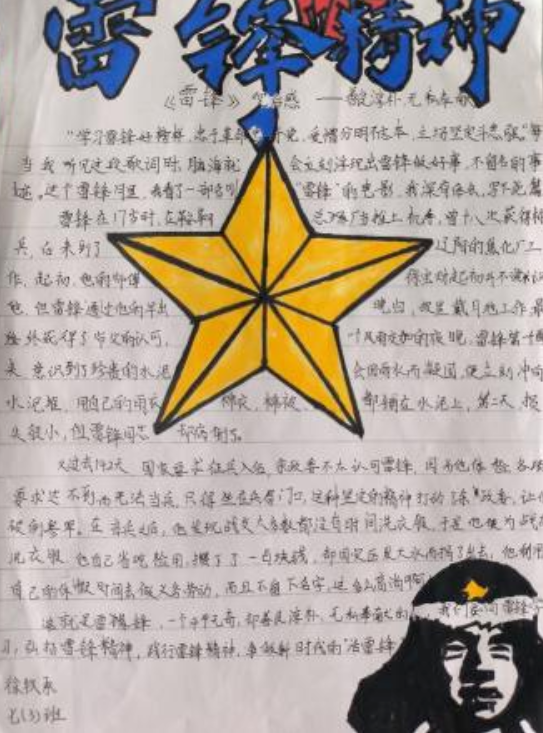 雷锋精神
《雷锋》观后感 ——善良淳朴 无私奉献
"学习雷锋好榜样,忠于革命忠于党,爱憎分明不忘本,立场坚定斗志强。"每
当我听见这段歌词时,脑海就 会立刻浮现出雷锋做好事,不留名的事
迹。这个雷锋月里,我看了一部名叫 "雷锋"的电影,我深有感
雷锋在17岁时,在鞍 当推上机 曾十八次获得
兵,后来到了 辽阳的焦化厂工
作,起初,他的师傅 得
他,但雷锋通过他的早出 晚归,披星戴月地工作,最
终获得了师父的认可, 一个风雨交加的夜晚,雷锋
来,意识到了珍贵的水泥 会因雨水而凝固,便立刻冲向
水泥堆,用自己的雨衣 棉衣,棉被, 都铺在水泥上,第二天,损
失较小,但雷锋同志 却病倒了。
又过去 国家要求征兵入伍,余政委不太认可雷锋,因为他体检各项
要求达不到而无法当兵,只得坐在兵营门口,这种坚定的精神打动了余政委,让他
破例参军。在当兵之后,他发现战友大多数都没有时间洗衣服,于是他便为战友
洗衣服,他自己省吃俭用,攒了一百块钱,却因安庄发大水而捐了出去,他利用
自己的休假时间去做义务劳动,而且不留下名字,这多么高尚啊
这就是雷锋精神,一个平凡无奇,却善良淳朴,无私奉献的人,我们要向雷锋学
习,弘扬雷锋精神,践行雷锋精神,争做新时代的"活雷锋"
七(3)班